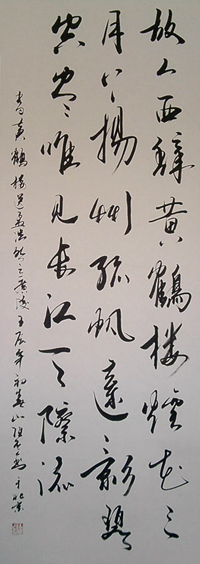 故人西辞黄鶴楼煙花三
月下揚州孤帆遠影碧
空盡唯見長江天際流
黄鶴楼送孟浩然之廣陵 壬辰年初春